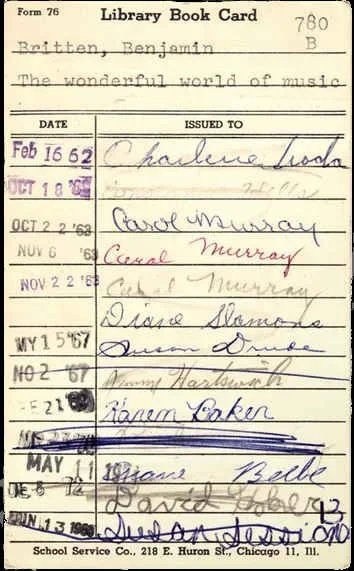 Form 76 Library Book Card 780
B
Britten, Benjamin
The wonderful world of music
DATE ISSUED TO
Feb 16 62 Charlene
OCT 18
OCT 22 '63 Carol Murray
NOV 6 '63 Carol Murray
NOV 22 '63 Carol Murray
Diane Slamons
MY 15 '67 Susan
NO 2 '67 Hartswich
21 Karen Baker
MAY 11 Diane Beebe
DE 6 72 David
JUN 13 Susan Sessions
School Service Co., 218 E. Huron St., Chicago 11, Ill.